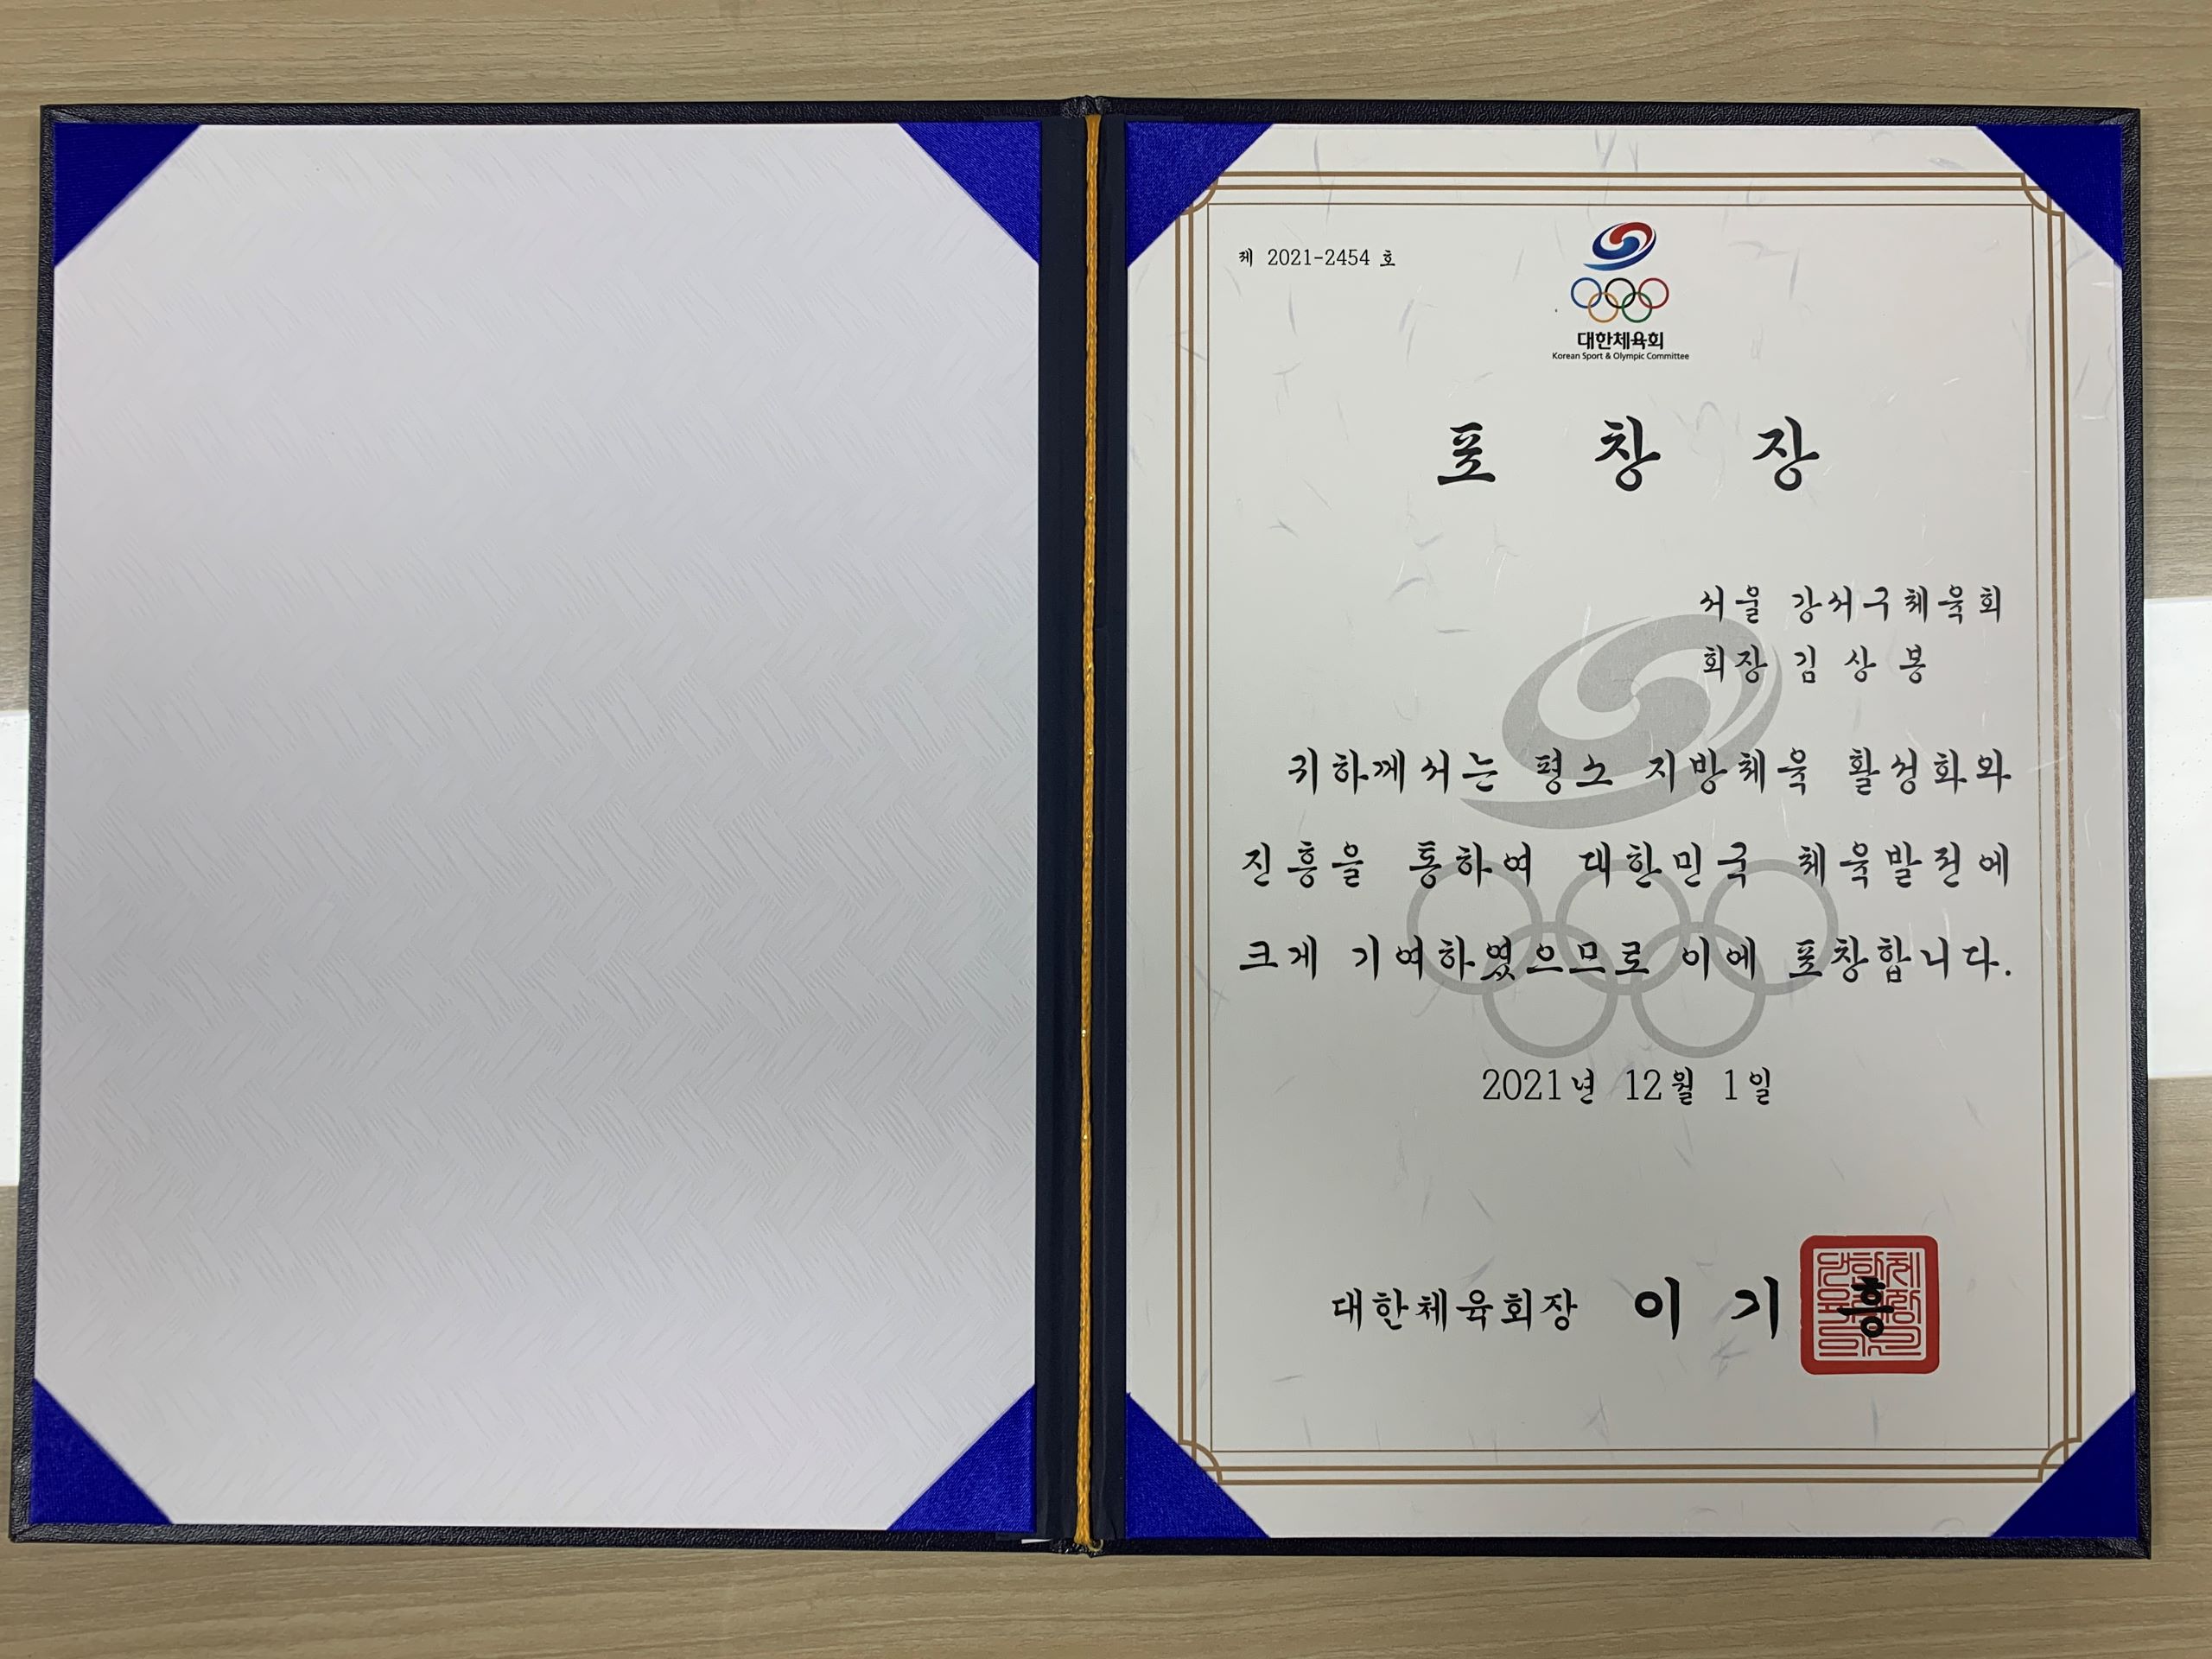 제 2021-2454 호
대한체육회
Korean Sport & Olympic Committee
포 창 장
서울 강서구체육회
회장 김 상 봉
귀하께서는 평소 지방체육 활성화와
진흥을 통하여 대한민국 체육발전에
크게 기여하였으므로 이에 포창합니다.
2021년 12월 1일
대한체육회장 이 기 흥